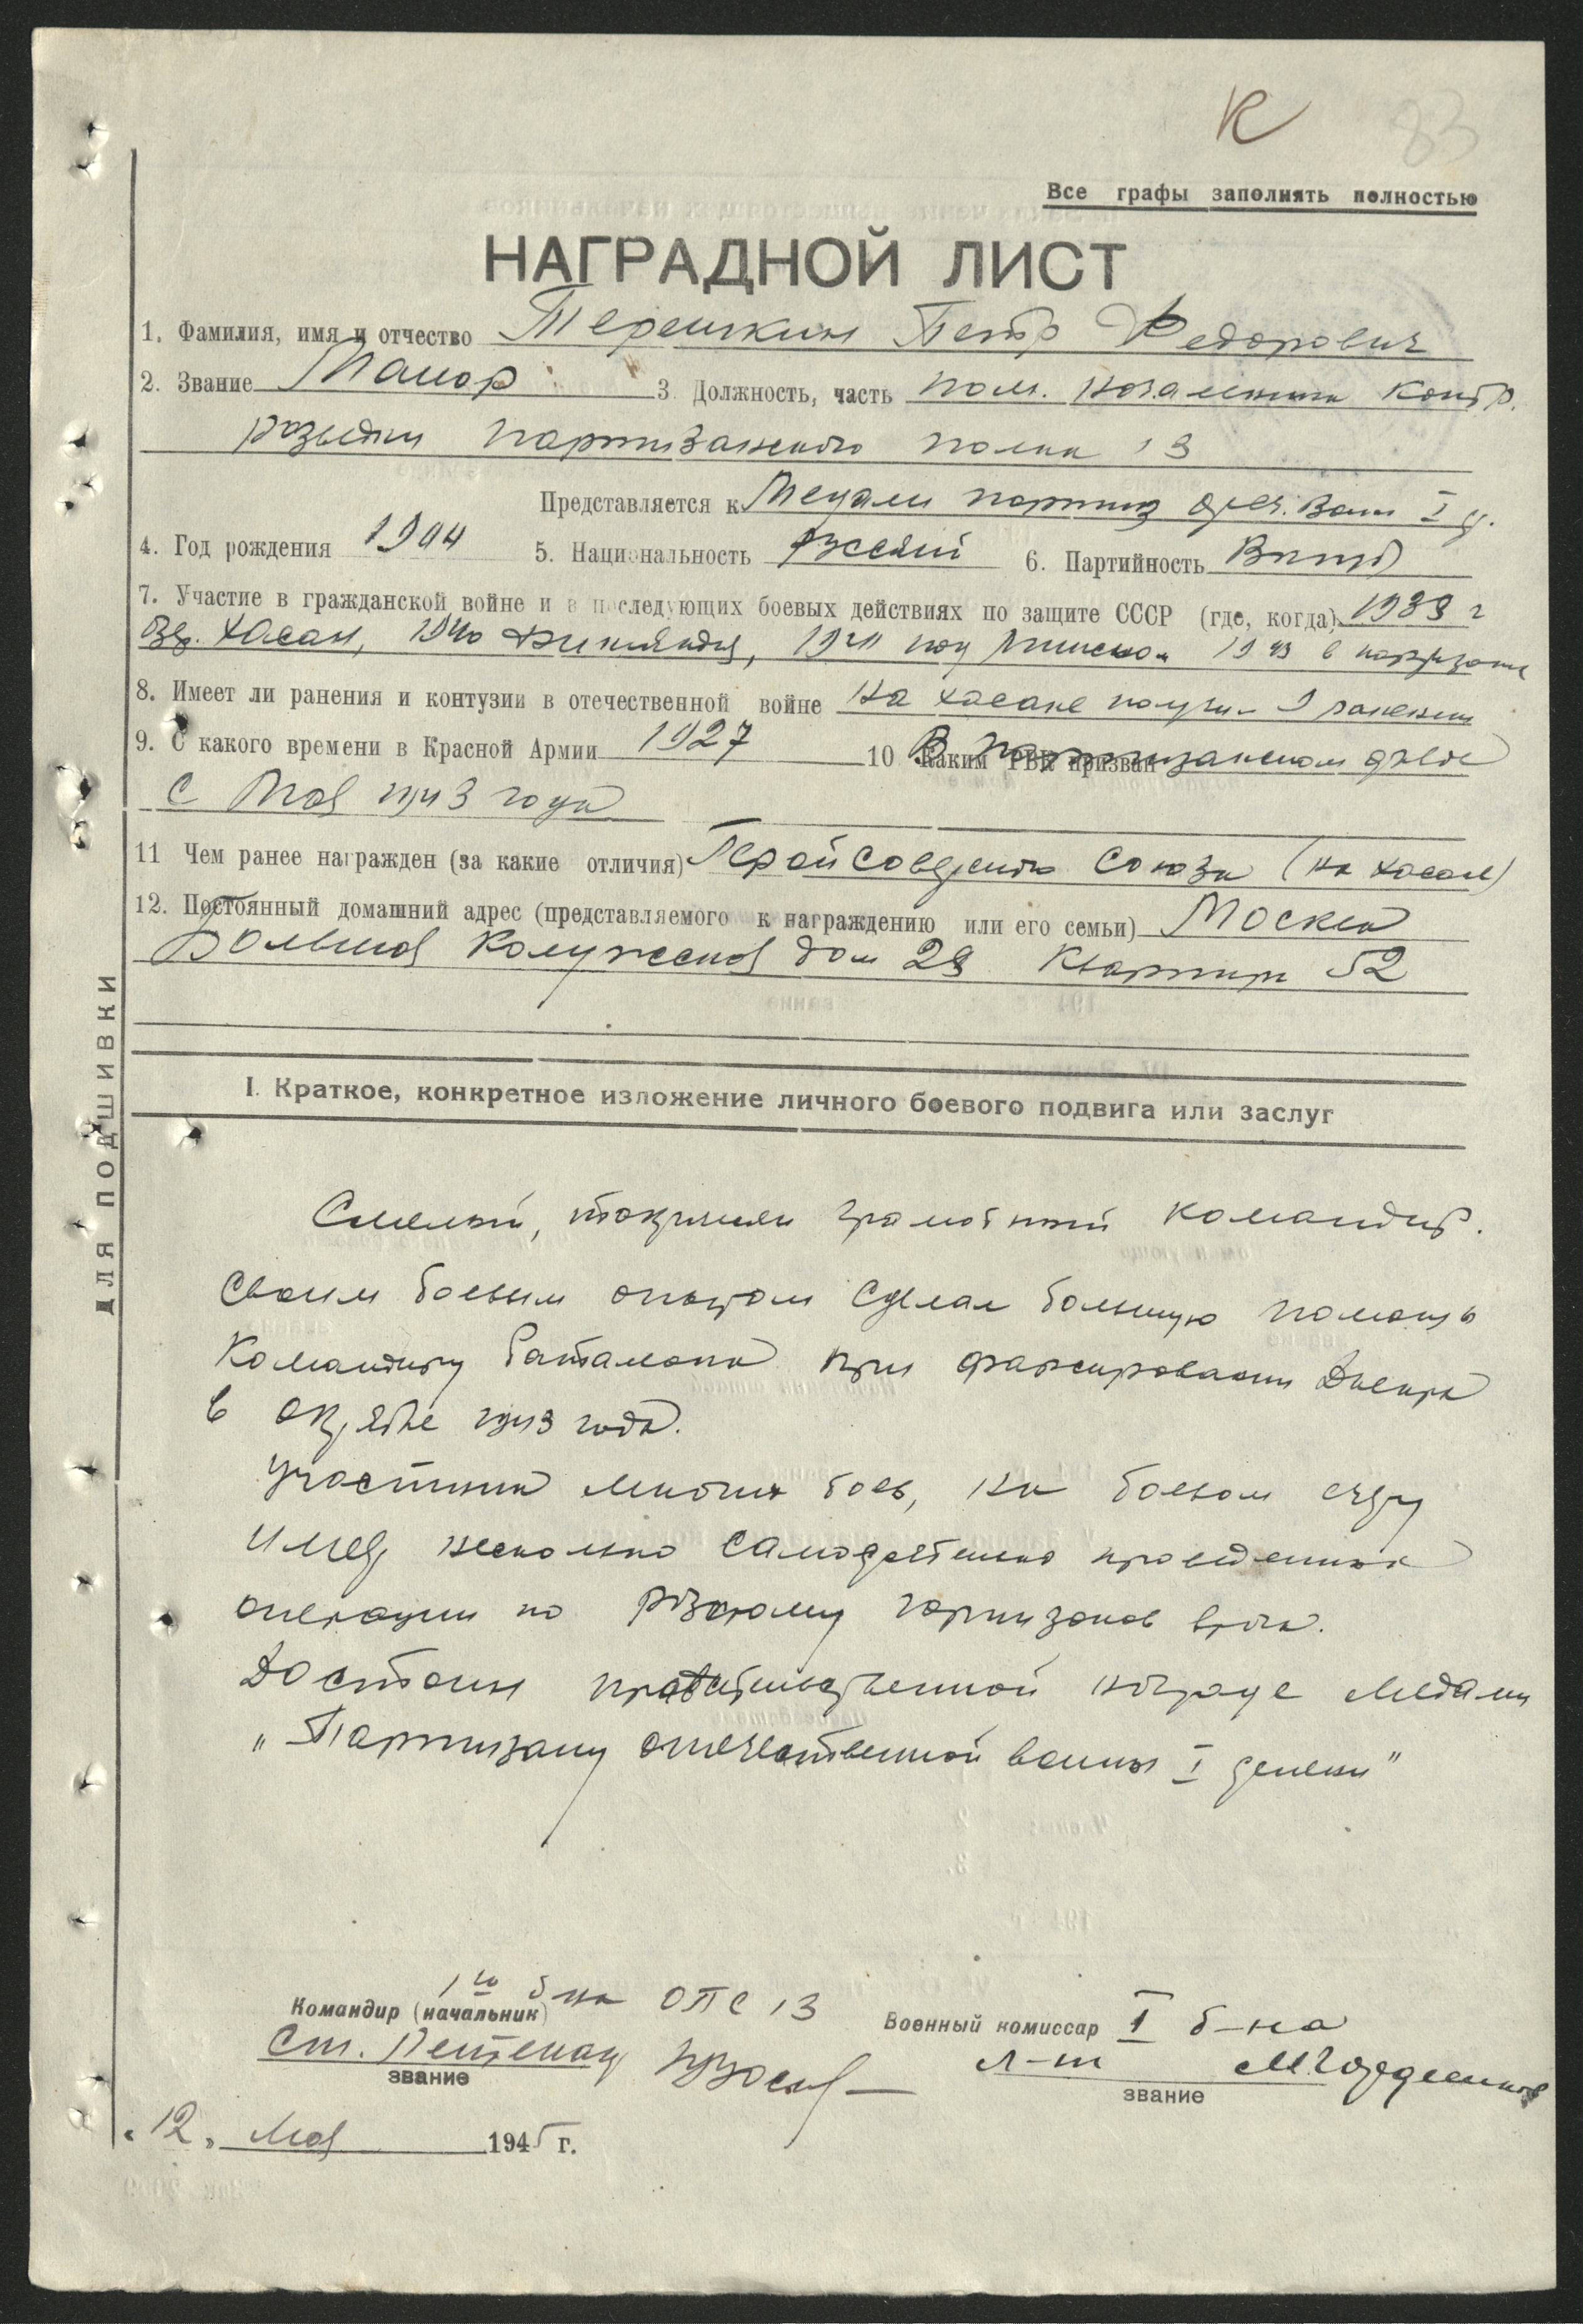 К 83
Все графы заполнять полностью
НАГРАДНОЙ ЛИСТ
1. Фамилия, имя и отчество Терешкин Петр Федорович
2. Звание Маиор 3. Должность, часть пом. Контр.
разведки партизанского полка 13
Представляется к Медали партиз отеч. Воин I
4. Год рождения 1904 5. Национальность Русский 6. Партийность ВКПб
7. Участие в гражданской войне и в последующих боевых действиях по защите СССР (где, когда) г
Хасан, 1940 Финляндия, под 1943 в
8. Имеет ли ранения и контузии в отечественной войне На Хасане
9. С какого времени в Красной Армии 1927 10 Каким РВК призван В Партизанском
с Мая 1943 года
11 Чем ранее награжден (за какие отличия) Герой Советского Союза (на Хасане)
12. Постоянный домашний адрес (представляемого к награждению или его семьи) Москва
Большая Калужская дом Квартира 52
ДЛЯ ПОДШИВКИ
I. Краткое, конкретное изложение личного боевого подвига или заслуг
Смелый, грамотный командир.
Своим боевым опытом сделал большую помощь
Командиру Баталиона при форсировании Днепра
в октябре 1943 года.
Участник многих боев, на боевом счету
имеет несколько самостоятельно проведенных
операции по разгрому гарнизонов врага.
Достоин правительственной награде медали
„Партизану отечественной воины I
Командир (начальник) 1го б-на ОПС 13 Военный комиссар I б-на
Ст. Лейтенант л-т
звание звание
„12„ Мая 1945 г.